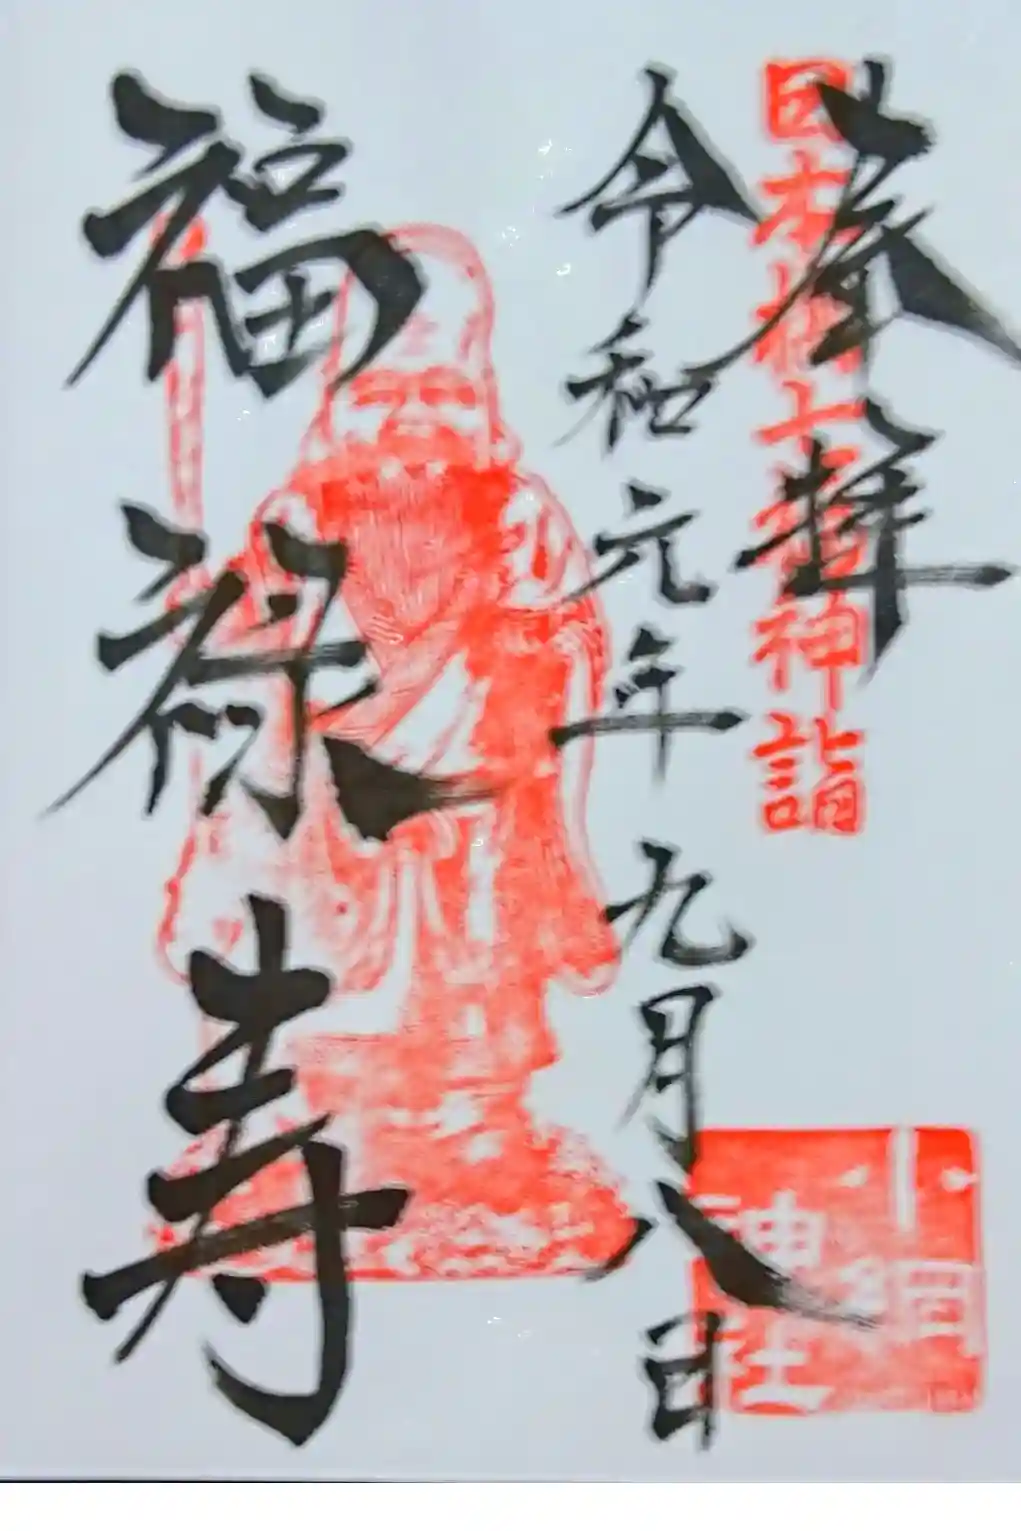 奉拝
日本橋七福神詣
令和元年九月八日
福禄寿
小網
神社